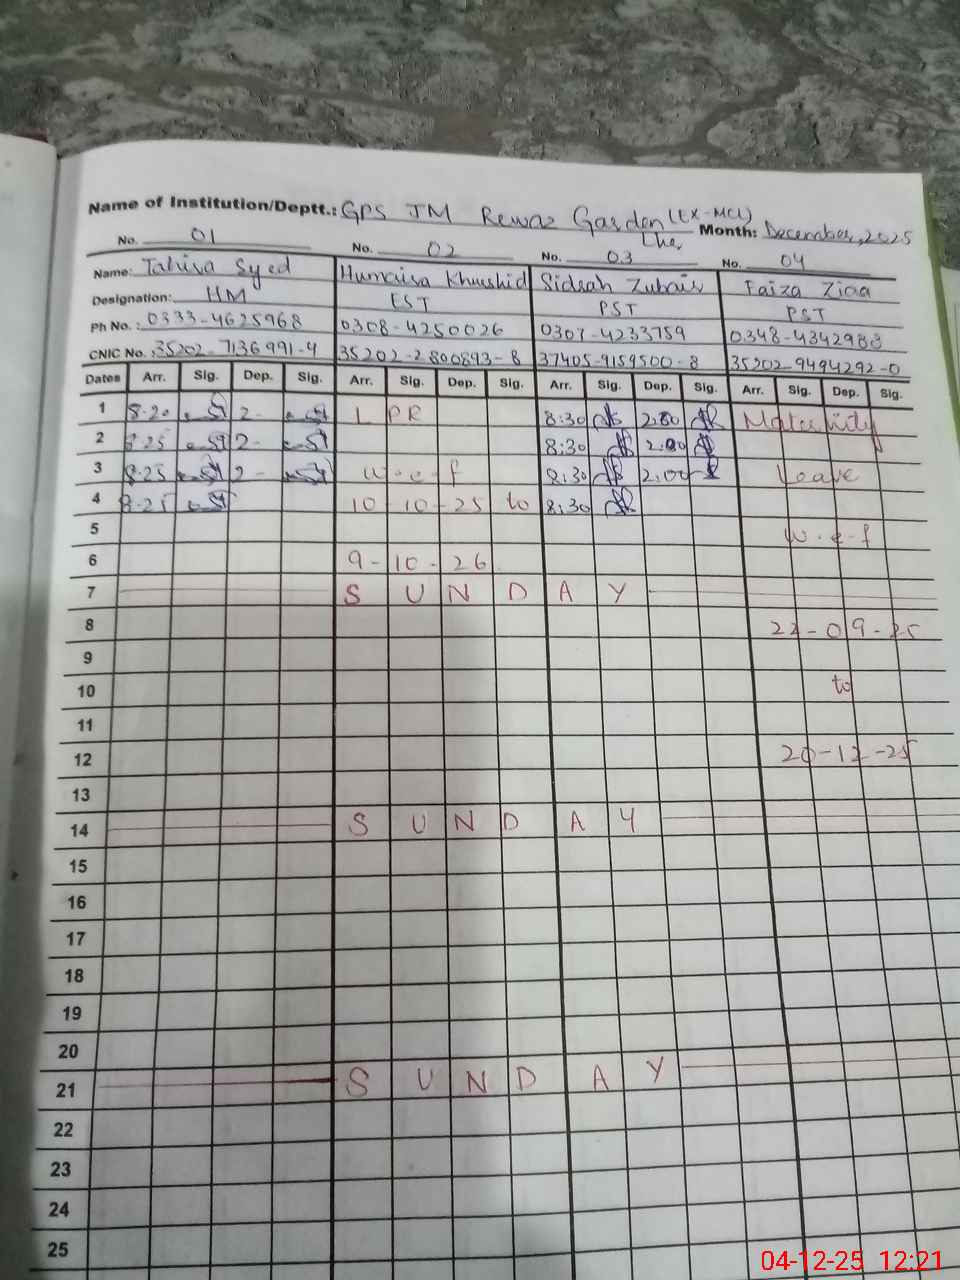 Name of Institution/Deptt.: GPS JM Rewaz Garden (EX-MCL) Lhe, Month: December, 2025
No. 01 No. 02 No. 03 No. 04
Name: Tahira Syed Humaira Khurshid Sidrah Zubair Faiza Ziaa
Designation: HM EST PST PST
Ph No.: 0333-4625968 0308-4250026 0307-4233759 0348-4342983
CNIC No.: 35202-7136991-4 35202-2800893-8 37405-9159500-8 35202-9494292-0
Dates Arr. Sig. Dep. Sig. Arr. Sig. Dep. Sig. Arr. Sig. Dep. Sig. Arr. Sig. Dep. Sig.
1 8-20 2- L PR 8:30 2.00 Maternity
2 8:25 2- 8:30 2.00
3 8-25 2- w-e-f 8:30 2.00 Leave
4 8-25 10-10-25 to 8:30
5 w-e-f
6 9-10-26
7 S U N D A Y
8 22-09-25
9
10 to
11
12 20-12-25
13
14 S U N D A Y
15
16
17
18
19
20
21 S U N D A Y
22
23
24
25
04-12-25 12:21